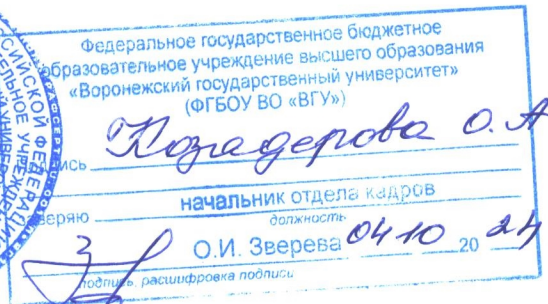 Федеральное государственное бюджетное
образовательное учреждение высшего образования
«Воронежский государственный университет»
(ФГБОУ ВО «ВГУ»)
Козадерова О. А
начальник отдела кадров
должность
О.И. Зверева 04 10 20 24
подпись, расшифровка подписи